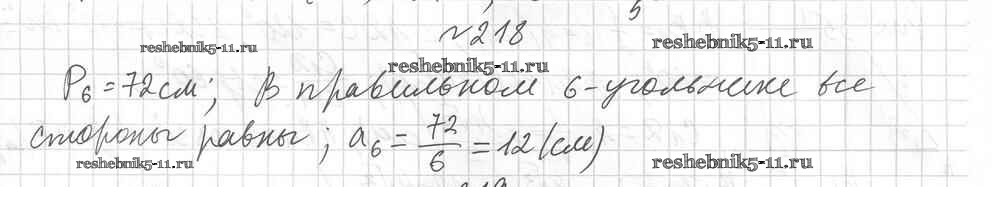 №218
reshebnik5-11.ru
reshebnik5-11.ru
reshebnik5-11.ru
P₆ = 72 см; В правильном 6-угольнике все
стороны равны; a₆ = 72/6 = 12 (см)
reshebnik5-11.ru
reshebnik5-11.ru